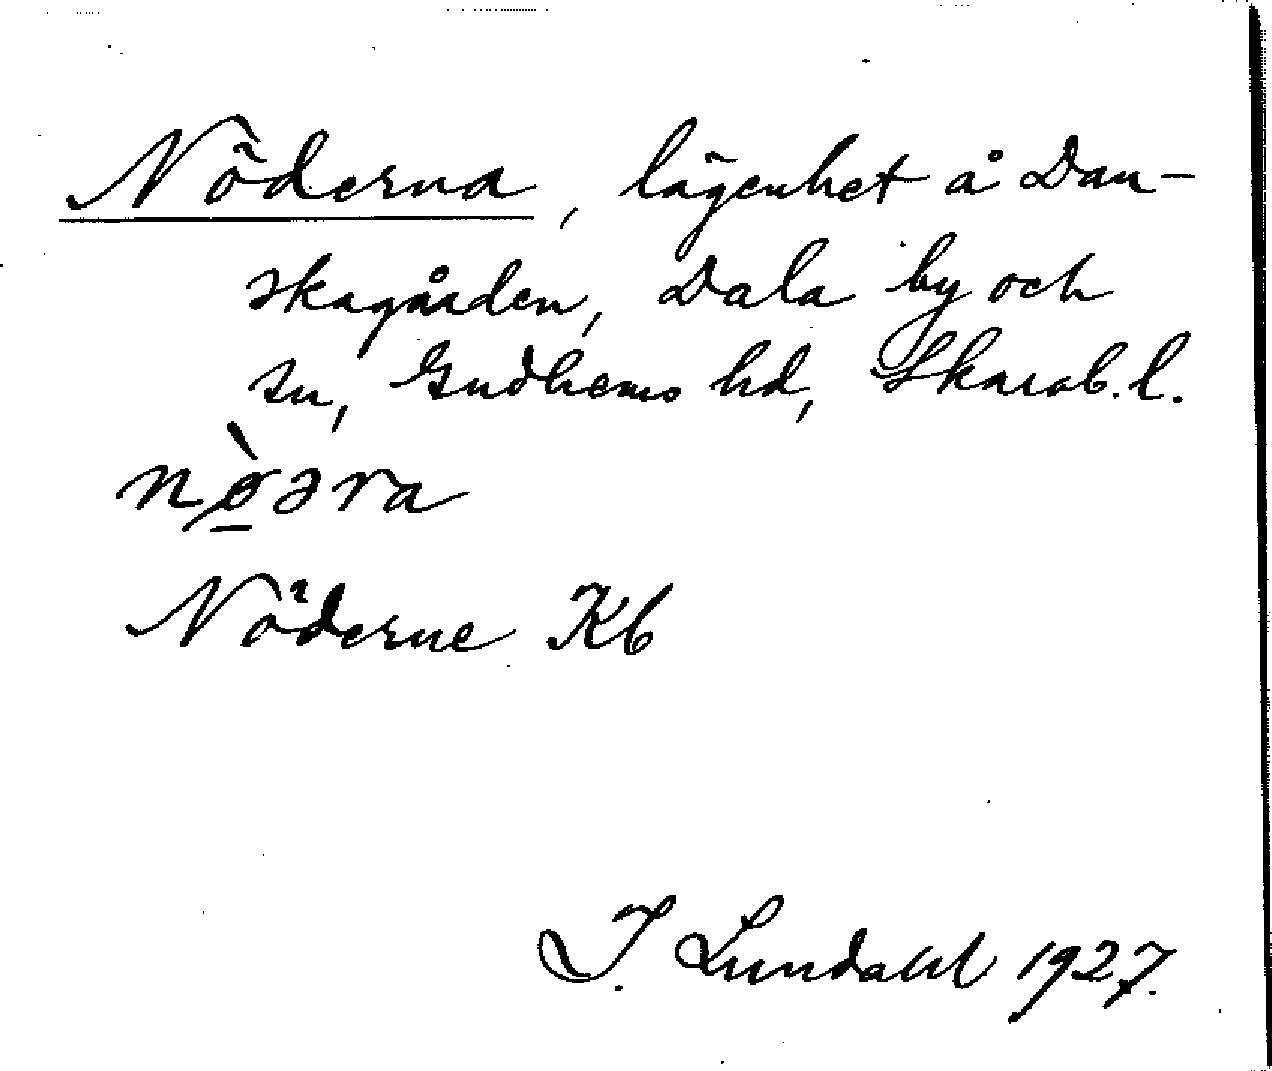 Nöderna, lägenhet å Dan-
skagården, Dala by och
sn, Gudhems hd, Skarab. l.
nø̠̀əra
Nöderne Kb
I. Lundahl 1927.